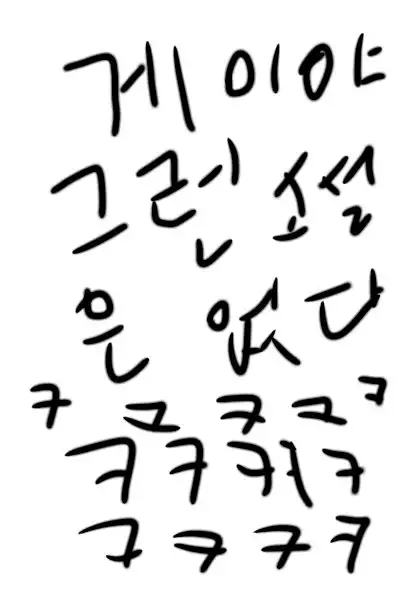 게이야
그런 소설
은 없다
ㅋㅋㅋㅋㅋ
ㅋㅋㅋㅋㅋ
ㅋㅋㅋㅋ